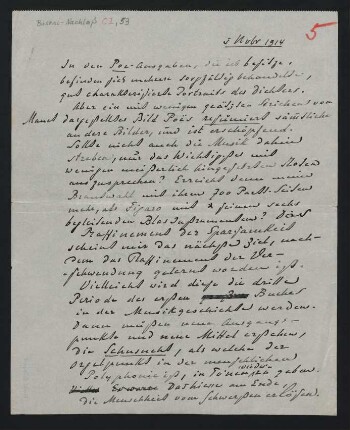 Busoni-Nachlaß CI, 53
5
5 Novbr 1914
In den Poe-Ausgaben, die ich besitze,
befinden sich mehrere sorgfältig behandelte,
gut charakterisirte Portraits des Dichters.
Aber ein mit wenigen geätzten Strichen von
Manet dargestelltes Bild Poës resümirt sämtliche
andere Bilder, und ist erschöpfend.
Sollte nicht auch die Musik dahin
streben, nur das Wichtigste mit
wenigen, meisterlich hingesetzten Noten
auszusprechen? Erreicht denn meine
Brautwahl mit ihren 700 Part. Seiten
mehr, als Figaro mit seinen sechs
begleitenden Blasinstrumenten? Dies
Raffinement der Sparsamkeit
scheint mir das nächste Ziel, nach-
dem das Raffinement der Ver-
schwendung gelernt worden ist.
Vielleicht wird diese die dritte
Periode des ersten Buches
in der Musikgeschichte werden.
Dann müssen neue Ausgangs-
punkte und neue Mittel erstehen,
die Sehnsucht, als welche der
Orgelpunkt in der menschlichen
Polyphonie ist, in Tönen wieder
zu geben.
Das hiesse am Ende,
die Menschheit vom Schwersten erlösen.